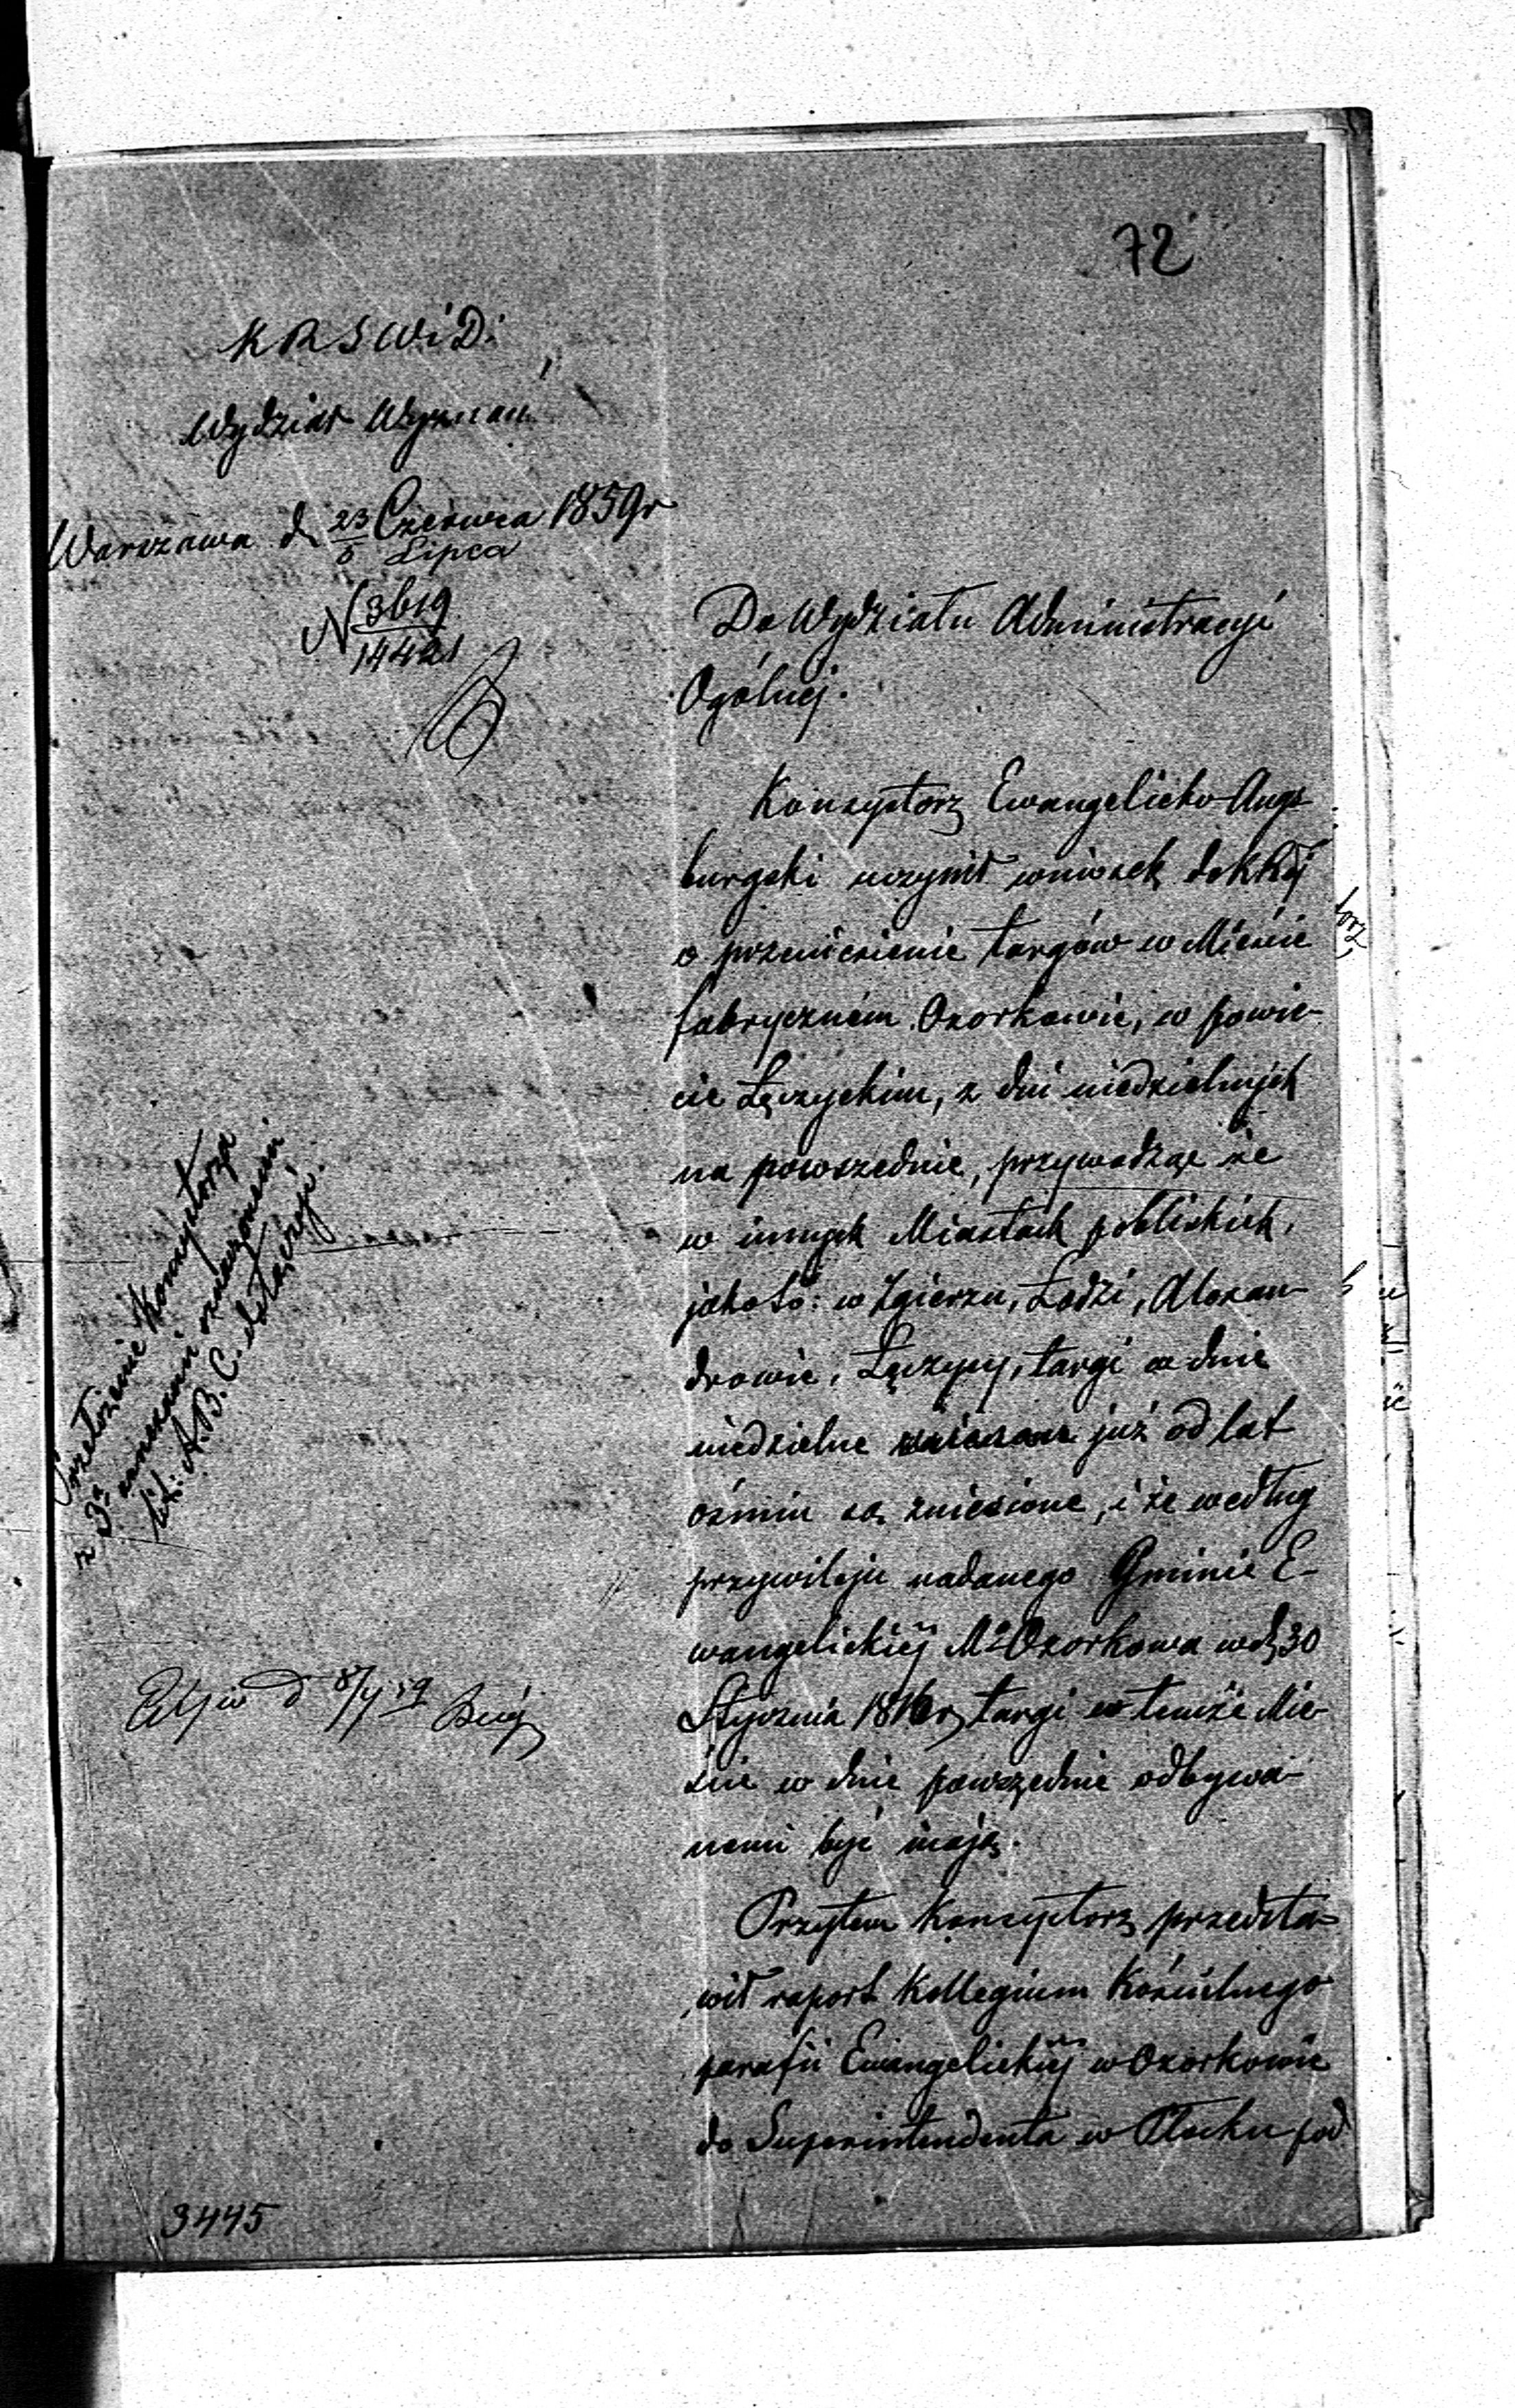 72
K R S W i D:
Wydział Wyznań
Warszawa d 23/5 Czerwca/Lipca 1859 r
N 3619/14421
Do Wydziału Administracyi
Ogólnej.
Konsystorz Ewangelicko Augs
burgski uczynił wniosek do KRój
o przeniesienie targów w Mieście
fabryczném Ozorkowie, w powie-
cie Łęczyckim, z dni niedzielnych
na powszednie, przywodząc że
w innych Miastach pobliskich,
jakoto: w Zgierzu, Łodzi, Alexan-
drowie, Łęczycy, targi w dnie
niedzielne już od lat
ośmiu są zniesione, i że według
przywileju nadanego Gminie E-
wangelickiéj Mta Ozorkowa w d 30
Stycznia 1816 r targi w temże Mie-
ście w dnie powszednie odbywa-
nemi być mają.
Przytem Konsystorz przedsta-
wił raport Kollegium Kościelnego
parafii Ewangelickiéj w Ozorkowie
do Superintendenta w Płocku pod
Przełożenie Konsystorza
z 3ma annexami oznaczonemi
lit: A. B. C. dołączyć.
3445